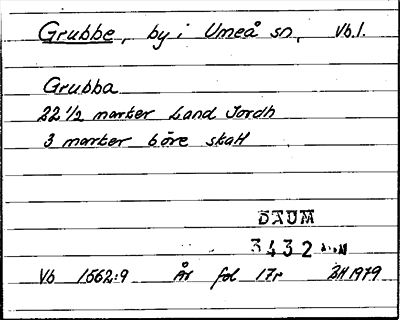 Grubbe, by i Umeå sn, Vb.l.
Grubba
22 1/2 marker Land Jordh
3 marker böre skatt
DAUM
3432
Vb 1562:9 År fol 17r BH 1979